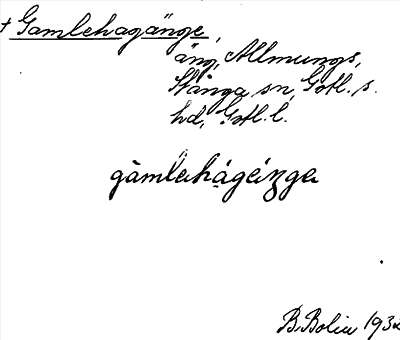 + Gamlehagänge,
äng, Allmungs,
Stånga sn, Gotl. s.
hd, Gotl. l.
gàmlehágeinge
B. Bolin 1932